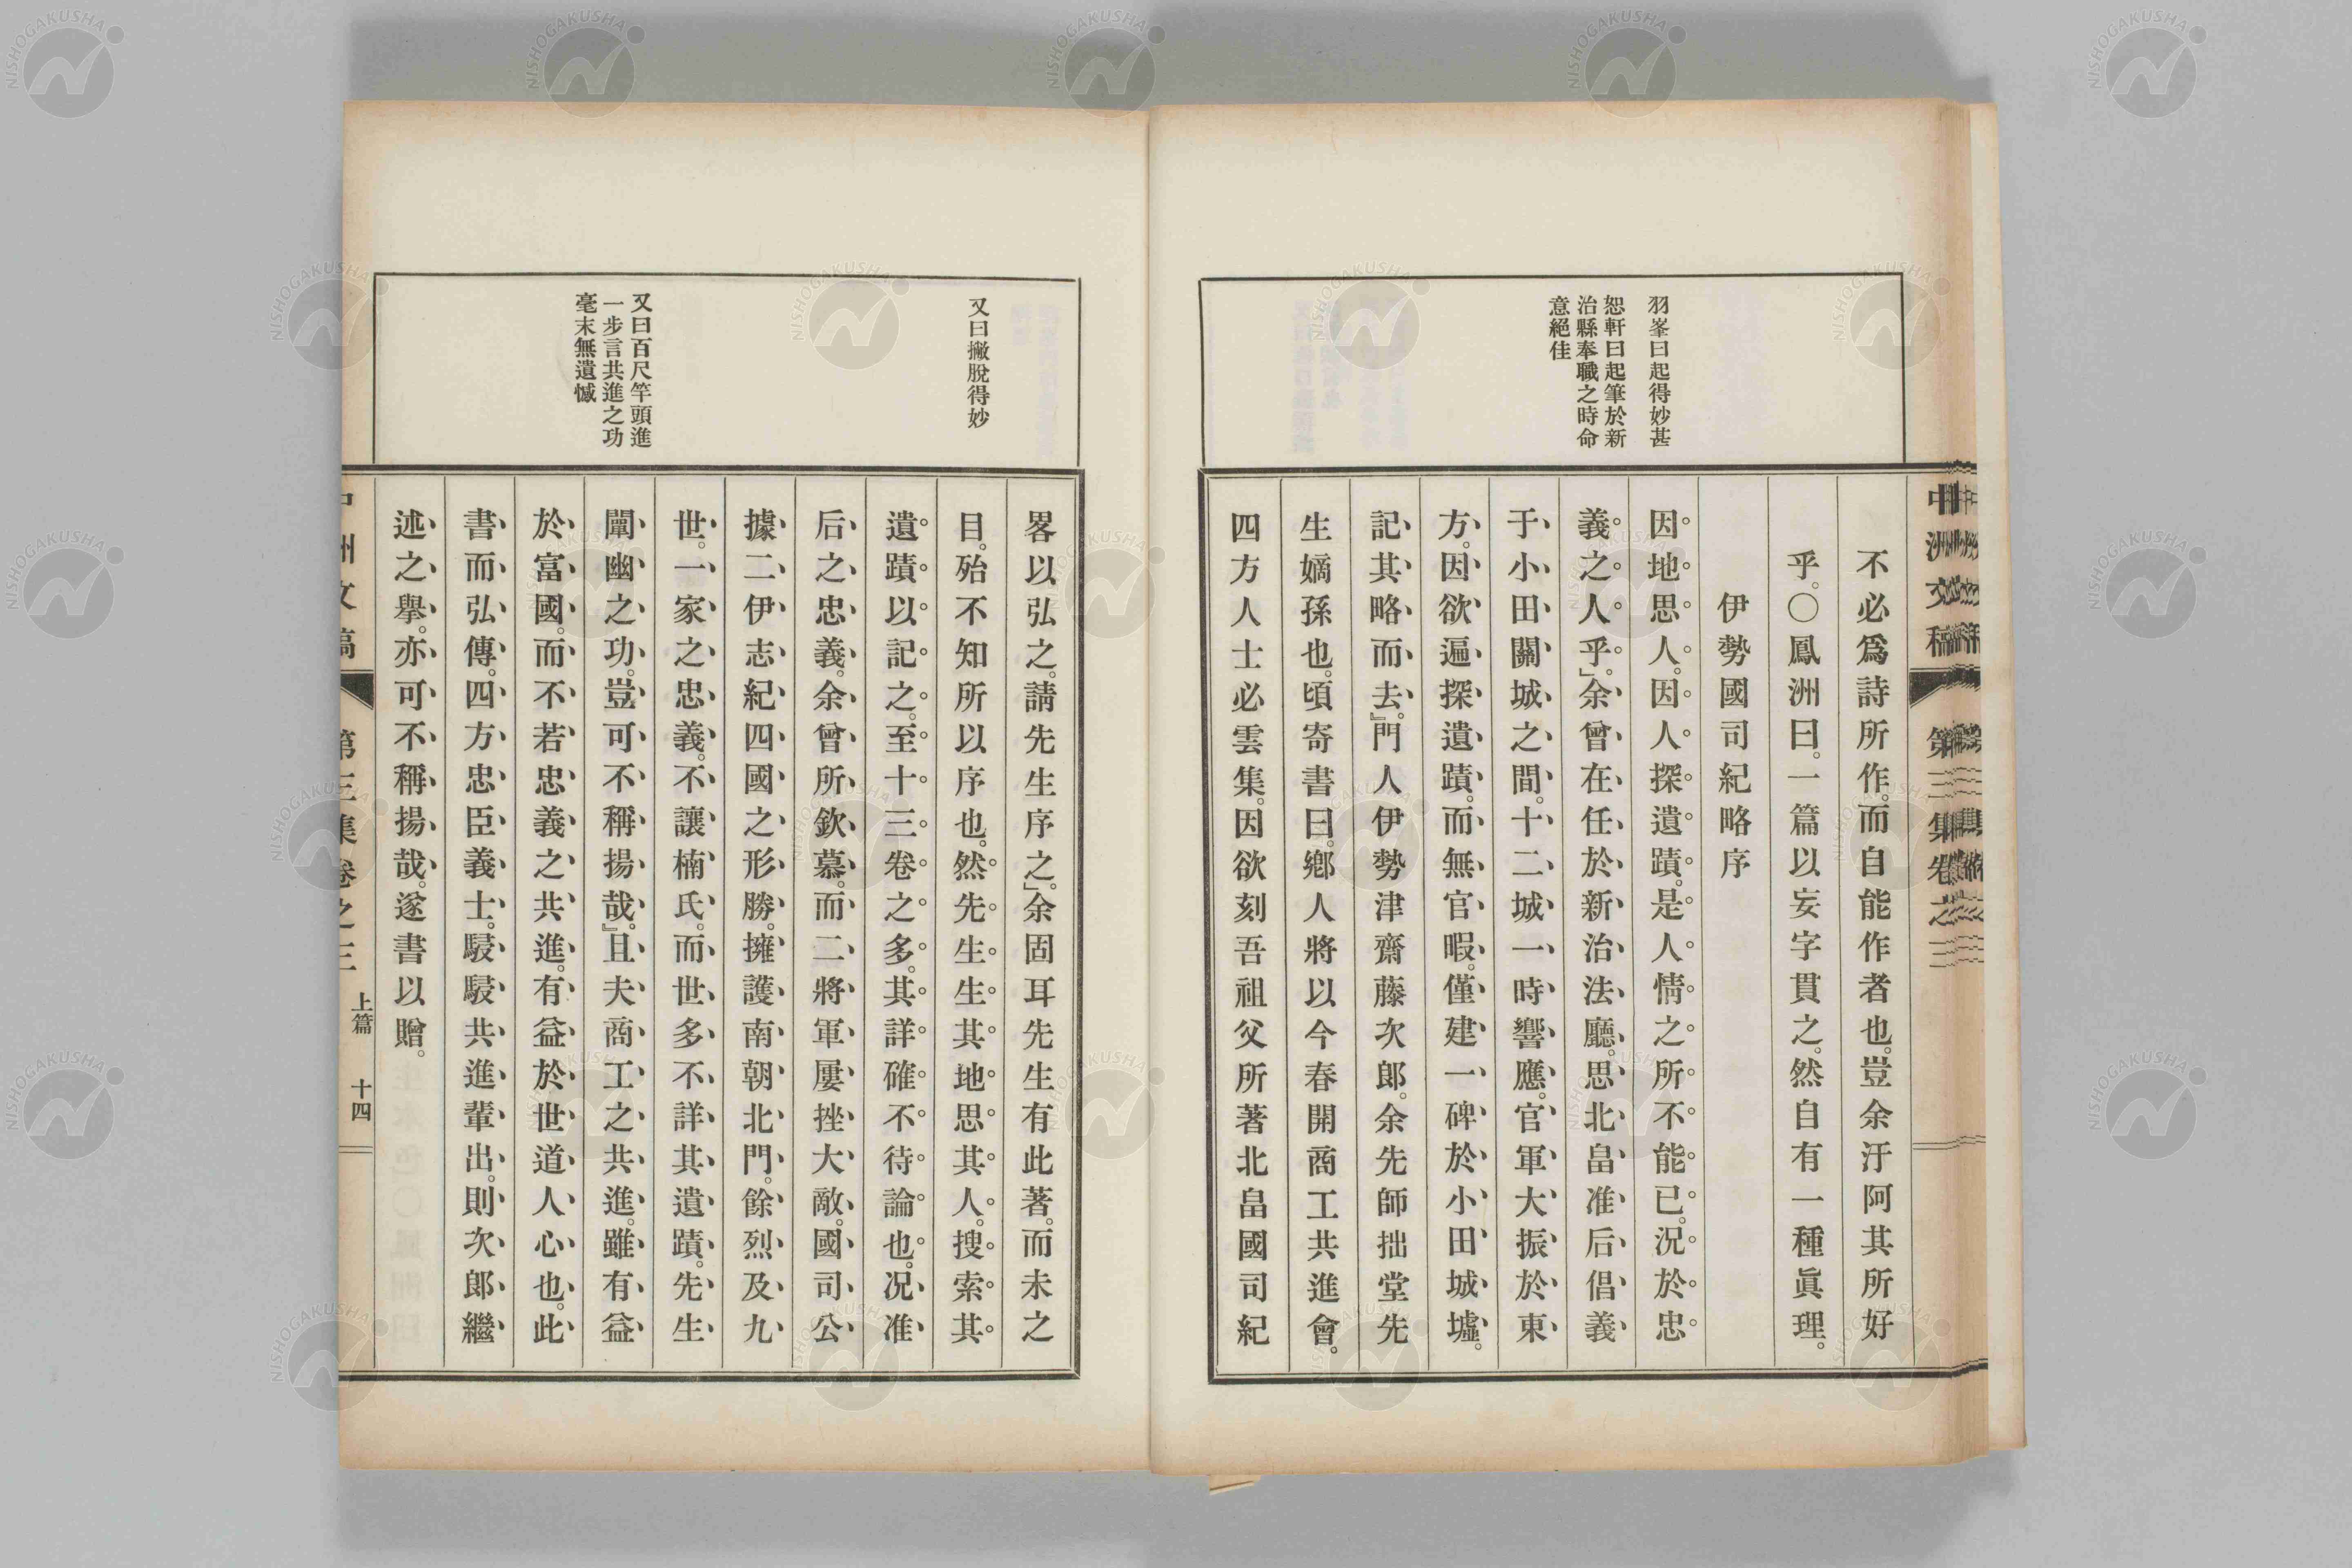 羽峯曰起得妙甚
恕軒曰起筆於新
治縣奉職之時命
意絕佳
中洲文稿
第三集卷之三
不必爲詩所作。而自能作者也。豈余汙阿其所好
乎。〇鳳洲曰。一篇以妄字貫之。然自有一種眞理。
伊勢國司紀略序
因地思人。因人探遺蹟。是人情之所不能已。況於忠
義之人乎。」余曾在任於新治法廳。思北畠准后倡義
于小田關城之間。十二城一時響應。官軍大振於東
方。因欲遍探遺蹟。而無官暇。僅建一碑於小田城墟。
記其略而去。』門人伊勢津齋藤次郎。余先師拙堂先
生嫡孫也。頃寄書曰。鄕人將以今春開商工共進會。
四方人士必雲集。因欲刻吾祖父所著北畠國司紀
又曰撇脫得妙
又曰百尺竿頭進
一步言共進之功
毫末無遺憾
畧以弘之。請先生序之。」余固耳先生有此著。而未之
目。殆不知所以序也。然先生生其地思其人。搜索其
遺蹟以記之。至十三卷之多。其詳確不待論也。况准
后之忠義。余曾所欽慕。而二將軍屢挫大敵。國司公
據二伊志紀四國之形勝。擁護南朝北門。餘烈及九
世。一家之忠義。不讓楠氏。而世多不詳其遺蹟。先生
闡幽之功。豈可不稱揚哉。』且夫商工之共進。雖有益
於富國。而不若忠義之共進。有益於世道人心也。此
書而弘傳。四方忠臣義士。駸駸共進輩出。則次郎繼
述之擧。亦可不稱揚哉。遂書以贈。
中洲文稿
第三集卷之三
上篇
十四